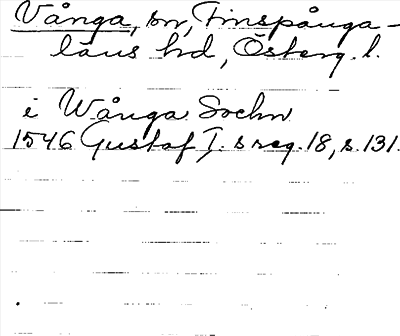 Vånga, sn, Finspånga-
läns hd, Österg. l.
i Wånga Sochn
1546 Gustaf I. s reg. 18, s. 131.